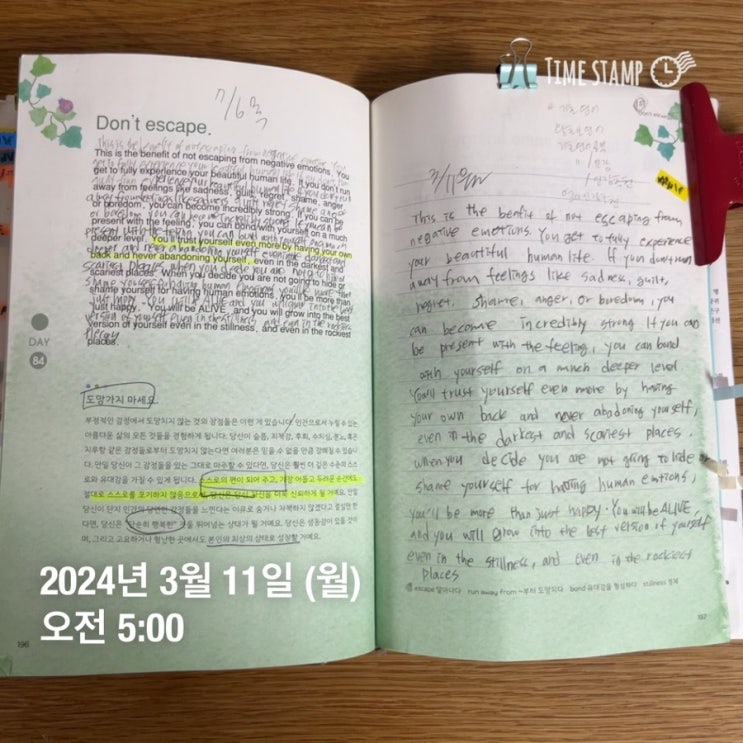 TIME STAMP
7/6 목
Don't escape.
This is the benefit of not escaping from negative emotions. You
get to fully experience your beautiful human life. If you don't run
away from feelings like sadness, guilt, regret, shame, anger
or boredom, you can become incredibly strong. If you can be
present with the feeling, you can bond with yourself on a much
deeper level. You'll trust yourself even more by having your own
back and never abandoning yourself, even in the darkest and
scariest places. When you decide you are not going to hide or
shame yourself for having human emotions, you'll be more than
just happy. You will be ALIVE, and you will grow into the best
version of yourself even in the stillness, and even in the rockiest
places.
DAY
84
도망가지 마세요.
부정적인 감정에서 도망치지 않는 것의 장점들은 이런 게 있습니다. 인간으로서 누릴 수 있는
아름다운 삶의 모든 것들을 경험하게 됩니다. 당신이 슬픔, 죄책감, 후회, 수치심, 분노, 혹은
지루함 같은 감정들로부터 도망치지 않는다면 여러분은 믿을 수 없을 만큼 강해질 수 있습니
다. 만일 당신이 그 감정들을 있는 그대로 마주할 수 있다면, 당신은 훨씬 더 깊은 수준의 스스
로와 유대감을 가질 수 있게 됩니다. 스스로의 편이 되어 주고, 가장 어둡고 두려운 순간에도
절대로 스스로를 포기하지 않음으로써 당신은 당신 자신을 더욱 신뢰하게 될 거예요. 만일
당신이 단지 인간의 당연한 감정들을 느낀다는 이유로 숨거나 자책하지 않겠다고 결심만 한
다면, 당신은 "단순히 행복한" 것을 뛰어넘는 상태가 될 거예요. 당신은 생동감이 있을 것이
며, 그리고 고요하거나 험난한 곳에서도 본인의 최상의 상태로 성장할 거예요.
196
3/11 월
This is the benfit of not escaping from
negative emotions. You get to fully experience
your beautiful human life. If you don't run
away from feelings like sadness, guilt,
regret, shame, anger, or boredom, you
can become incredibly strong If you can
be present with the feeling, you can bond
with yourself on a much deeper level.
You'll trust yourself even more by having
your own back and never abadoning yourself,
even in the darkest and scariest places.
when you decide you are not going to hide or
shame yourself for hatting human emtions,
you'll be more than just happy. You will be ALIVE,
and you will grow into the best version of yourself
even in the stillness, and even in the rockiest
places
escape 달아나다 run away from ~부터 도망치다 bond 유대감을 형성하다 stillness 정적
197
2024년 3월 11일 (월)
오전 5:00